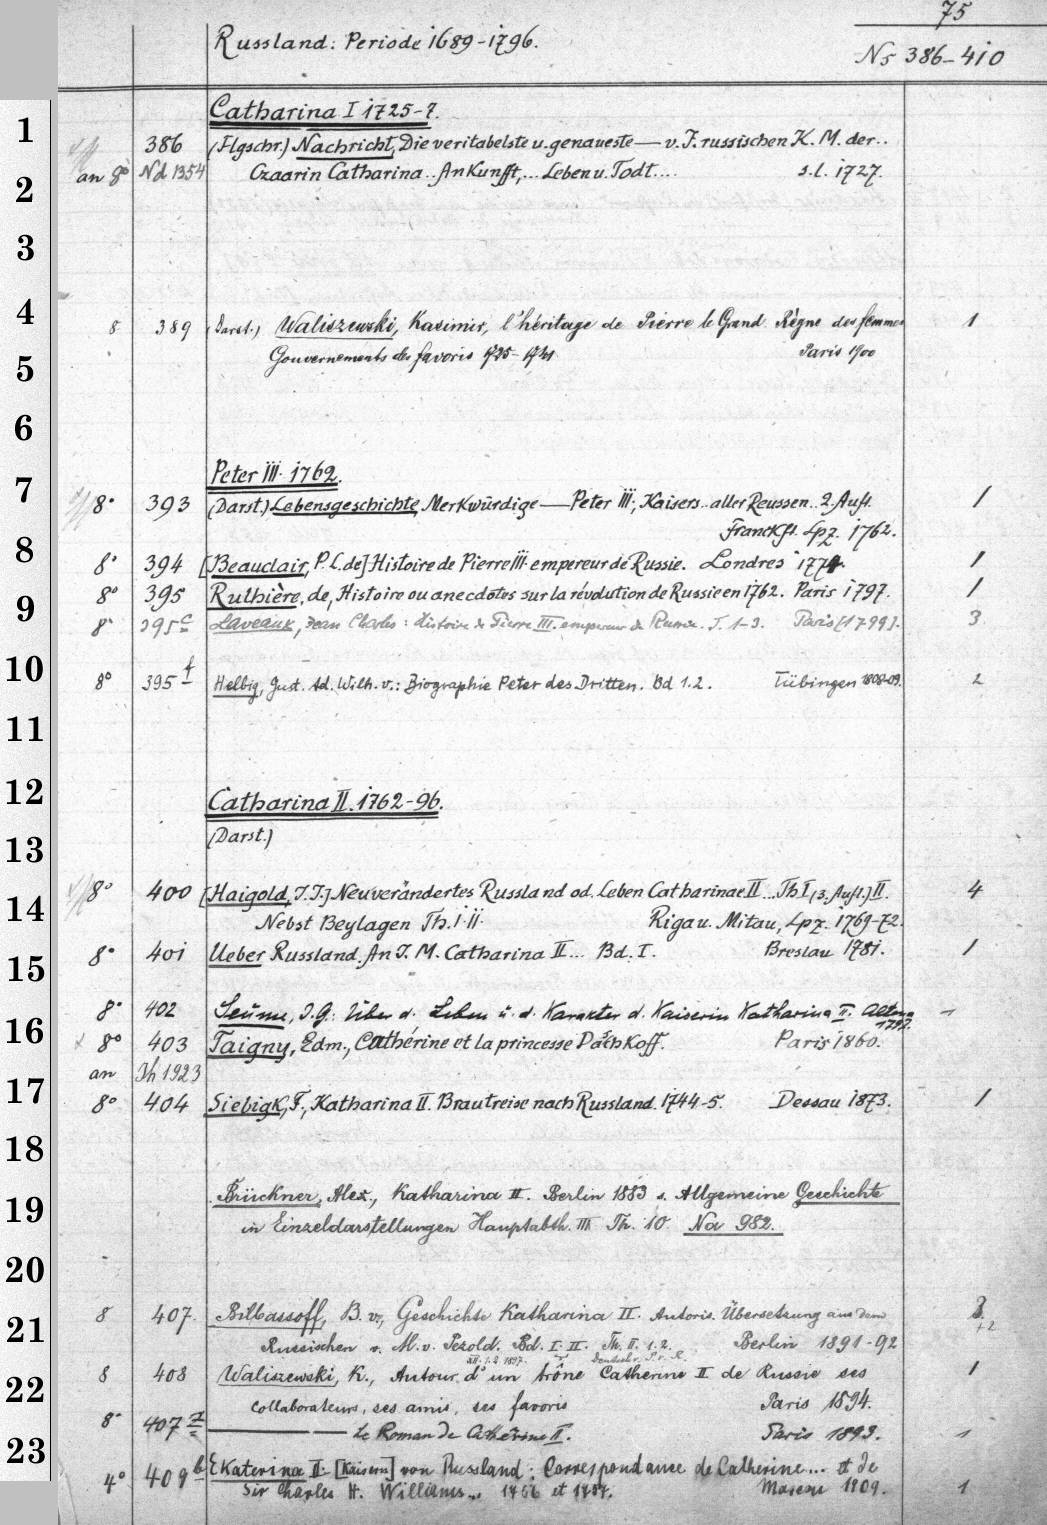 75
Russland: Periode 1689-1796.
No 386-410
Catharina I 1725-7.
1
386 (Flgschr.) Nachricht, Die veritabelste u. genaueste — v. I. russischen K. M. der..
an 8° Nd 1354 Czaarin Catharina.. Ankunfft,... Leben u. Todt.... s.l. 1727.
2
3
4
8 389 (Darst.) Waliszewski, Kasimir, l'héritage de Pierre le Grand Règne des femmes 1
Gouvernements des favoris 1725-1741 Paris 1900
5
6
Peter III. 1762.
7
8° 393 (Darst.) Lebensgeschichte, Merkwürdige — Peter III., Kaisers.. aller Reussen.. 2. Aufl. 1
Franckf. Lpz. 1762.
8
8° 394 [Beauclair, P. L. de] Histoire de Pierre III. empereur de Russie. Londres 1774. 1
9
8° 395 Rulhière, de, Histoire ou anecdotes sur la révolution de Russie en 1762. Paris 1797. 1
8° 395c Laveaux, Jean Charles: Histoire de Pierre III. empereur de Russie. T. 1-3. Paris [1799]. 3
10
8° 395f Helbig, Gust. Ad. Wilh. v.: Biographie Peter des Dritten. Bd 1.2. Tübingen 1808-09. 2
11
12
Catharina II. 1762-96.
(Darst.)
13
8° 400 [Haigold, J. J.] Neuverändertes Russland od. Leben Catharinae II... Th I (3. Aufl.) II. 4
14
Nebst Beylagen Th. I. II. Riga u. Mitau, Lpz. 1769-72.
8° 401 Ueber Russland. An I. M. Catharina II... Bd. I. Breslau 1781. 1
15
8° 402 Seume, J. G. Über d. Leben u. d. Karakter d. Kaiserin Katharina II. Altona 1797. —
16
8° 403 Taigny, Edm., Cathérine et la princesse Daschkoff. Paris 1860.
an Jh 1923
17
8° 404 Siebigk, F., Katharina II. Brautreise nach Russland. 1744-5. Dessau 1873. 1
18
Brückner, Alex., Katharina II. Berlin 1883 s. Allgemeine Geschichte
19
in Einzeldarstellungen Hauptabth. III Th. 10 Na 982.
20
8 407. Bilbassoff, B. v., Geschichte Katharina II. Autoris. Übersetzung aus dem
+2
21
Russischen v. M. v. Pezold. Bd. I-II. Th. II. 1.2. Berlin 1891-92
22
8 408 Waliszewski, K., Autour d'un trône Catherine II de Russie ses 1
collaborateurs, ses amis, ses favoris Paris 1894.
8° 407 —— — Le Roman de Cathérine II. Paris 1893. 1
23
4° 409b Ekaterina II. [Kaiserin] von Russland: Correspondance de Catherine... et de
Sir Charles H. Williams... 1756 et 1757. Moscou 1909. 1